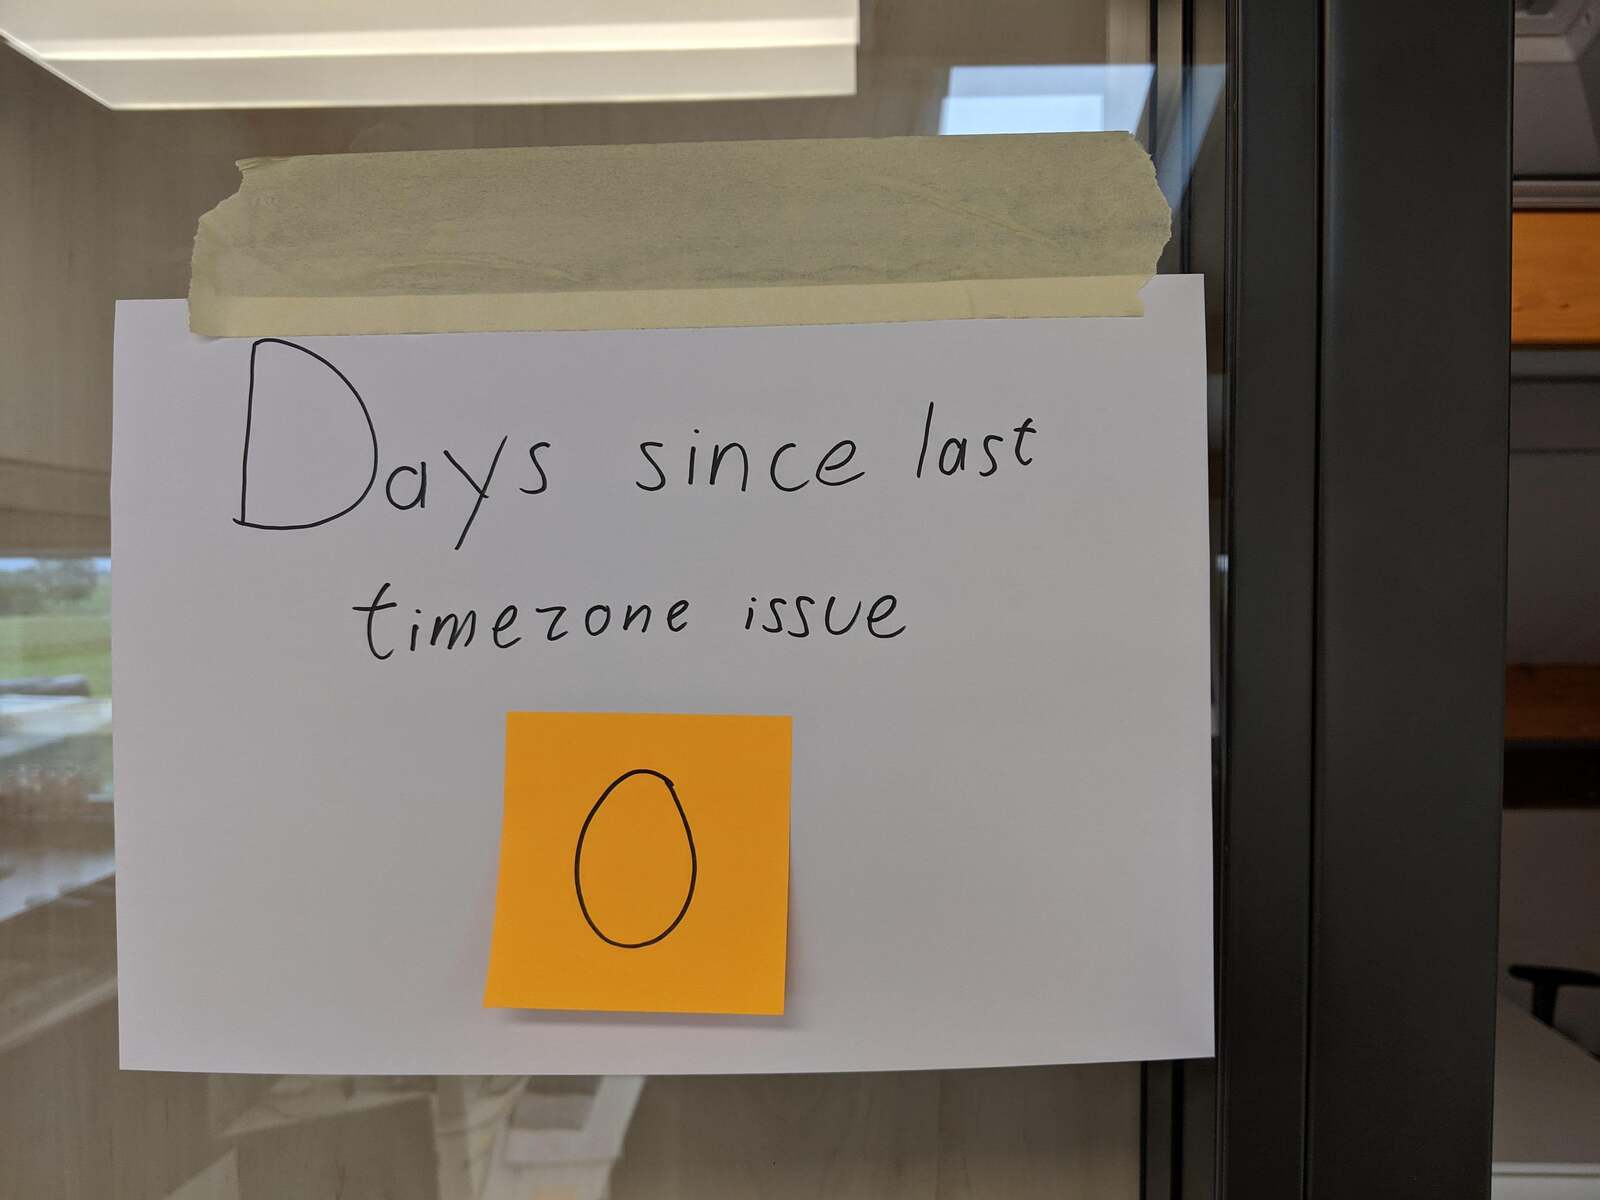 Days since last
timezone issue
0